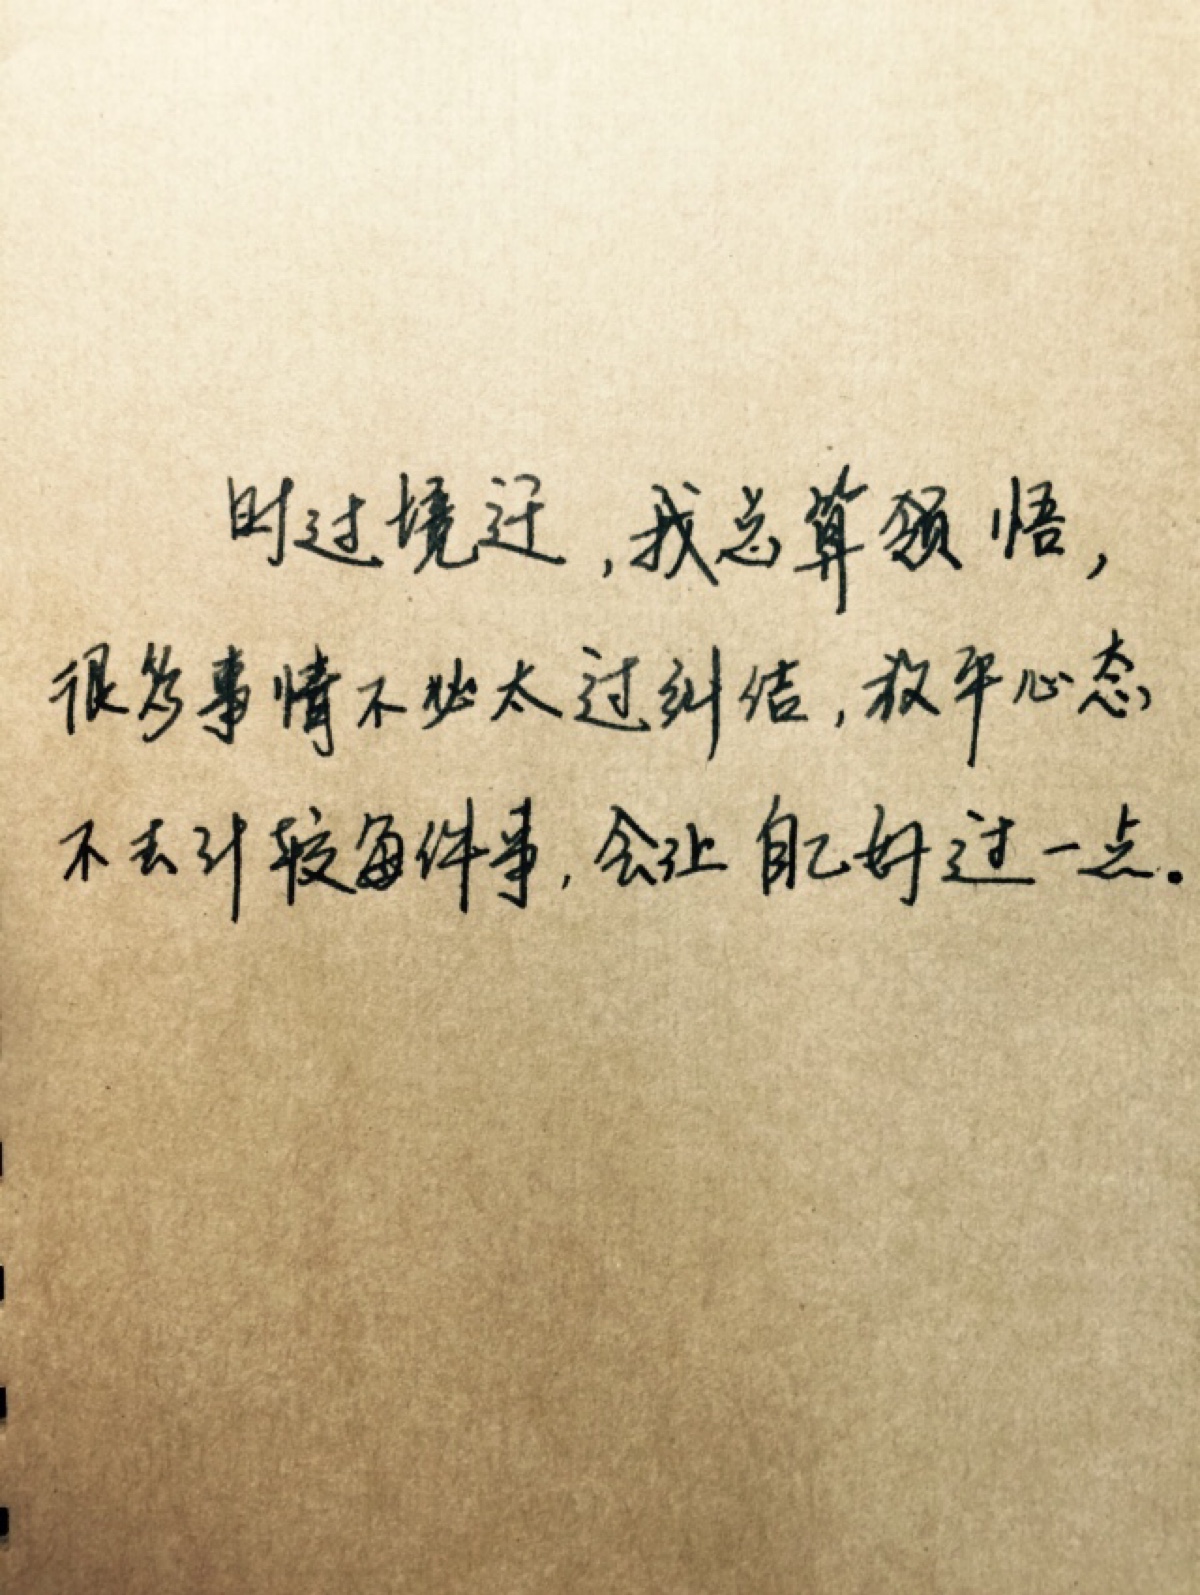 时过境迁,我总算领悟,
很多事情不必太过纠结,放平心态
不去计较每件事,会让自己好过一点.